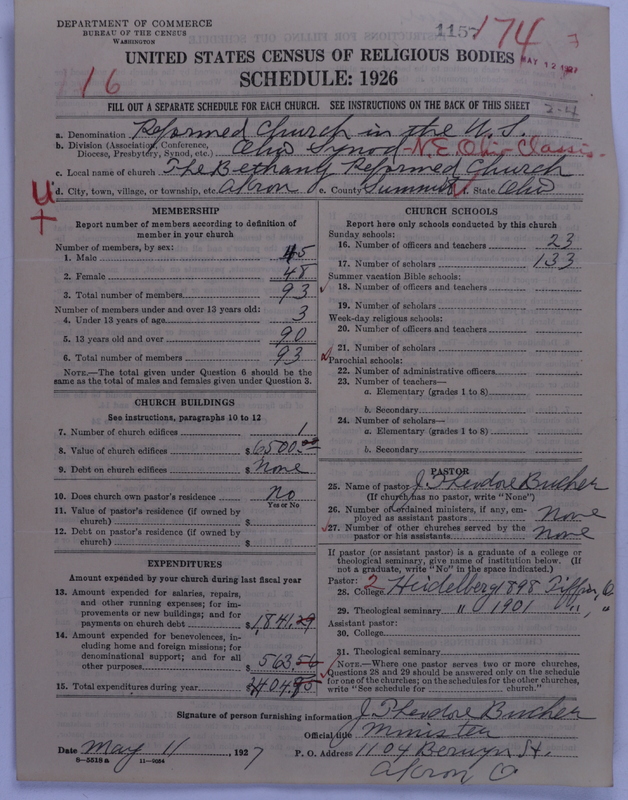 DEPARTMENT OF COMMERCE
BUREAU OF THE CENSUS
WASHINGTON
1157
174
MAY 12 1927
16
UNITED STATES CENSUS OF RELIGIOUS BODIES
SCHEDULE: 1926
FILL OUT A SEPARATE SCHEDULE FOR EACH CHURCH. SEE INSTRUCTIONS ON THE BACK OF THIS SHEET
2-4
a. Denomination Reformed Church in the U.S.
b. Division (Association, Conference, Diocese, Presbytery, Synod, etc.) Ohio Synod - N.E. Ohio Classis.
c. Local name of church The Bethany Reformed Church
d. City, town, village, or township, etc. Akron e. County Summit f. State Ohio
MEMBERSHIP
Report number of members according to definition of
member in your church
Number of members, by sex:
1. Male 45
2. Female 48
3. Total number of members 93
Number of members under and over 13 years old:
4. Under 13 years of age 3
5. 13 years old and over 90
6. Total number of members 93
NOTE.—The total given under Question 6 should be
same as the total of males and females given under Question 3.
CHURCH BUILDINGS
See instructions, paragraphs 10 to 12
7. Number of church edifices 1
8. Value of church edifices $6500.00
9. Debt on church edifices $ None
10. Does church own pastor's residence No
Yes or No
11. Value of pastor's residence (if owned by
church) $
12. Debt on pastor's residence (if owned by
church) $
EXPENDITURES
Amount expended by your church during last fiscal year
13. Amount expended for salaries, repairs,
and other running expenses; for im-
provements or new buildings; and for
payments on church debt $1,841.29
14. Amount expended for benevolences, in-
cluding home and foreign missions; for
denominational support; and for all
other purposes $563.56
15. Total expenditures during year $2404.85
CHURCH SCHOOLS
Report here only schools conducted by this church
Sunday schools:
16. Number of officers and teachers 23
17. Number of scholars 133
Summer vacation Bible schools:
18. Number of officers and teachers
19. Number of scholars
Week-day religious schools:
20. Number of officers and teachers
21. Number of scholars
Parochial schools:
22. Number of administrative officers
23. Number of teachers—
a. Elementary (grades 1 to 8)
b. Secondary
24. Number of scholars—
a. Elementary (grades 1 to 8)
b. Secondary
PASTOR
25. Name of pastor J. Theodore Bucher
(If church has no pastor, write "None")
26. Number of ordained ministers, if any, em-
ployed as assistant pastors None
27. Number of other churches served by the
pastor or his assistants None
If pastor (or assistant pastor) is a graduate of a college or
theological seminary, give name of institution below. (If
not a graduate, write "No" in the space indicated.)
Pastor:
28. College 2 Heidelberg 1898 Tiffin, O.
29. Theological seminary " 1901 " "
Assistant pastor:
30. College
31. Theological seminary
NOTE.—Where one pastor serves two or more churches,
Questions 28 and 29 should be answered only on the schedule
for one of the churches; on the schedules for the other churches,
write "See schedule for church."
Signature of person furnishing information J. Theodore Bucher
Official title Minister
Date May 11, 1927 P. O. Address 1104 Berwyn St.
Akron O
8-5518 a 11-9054